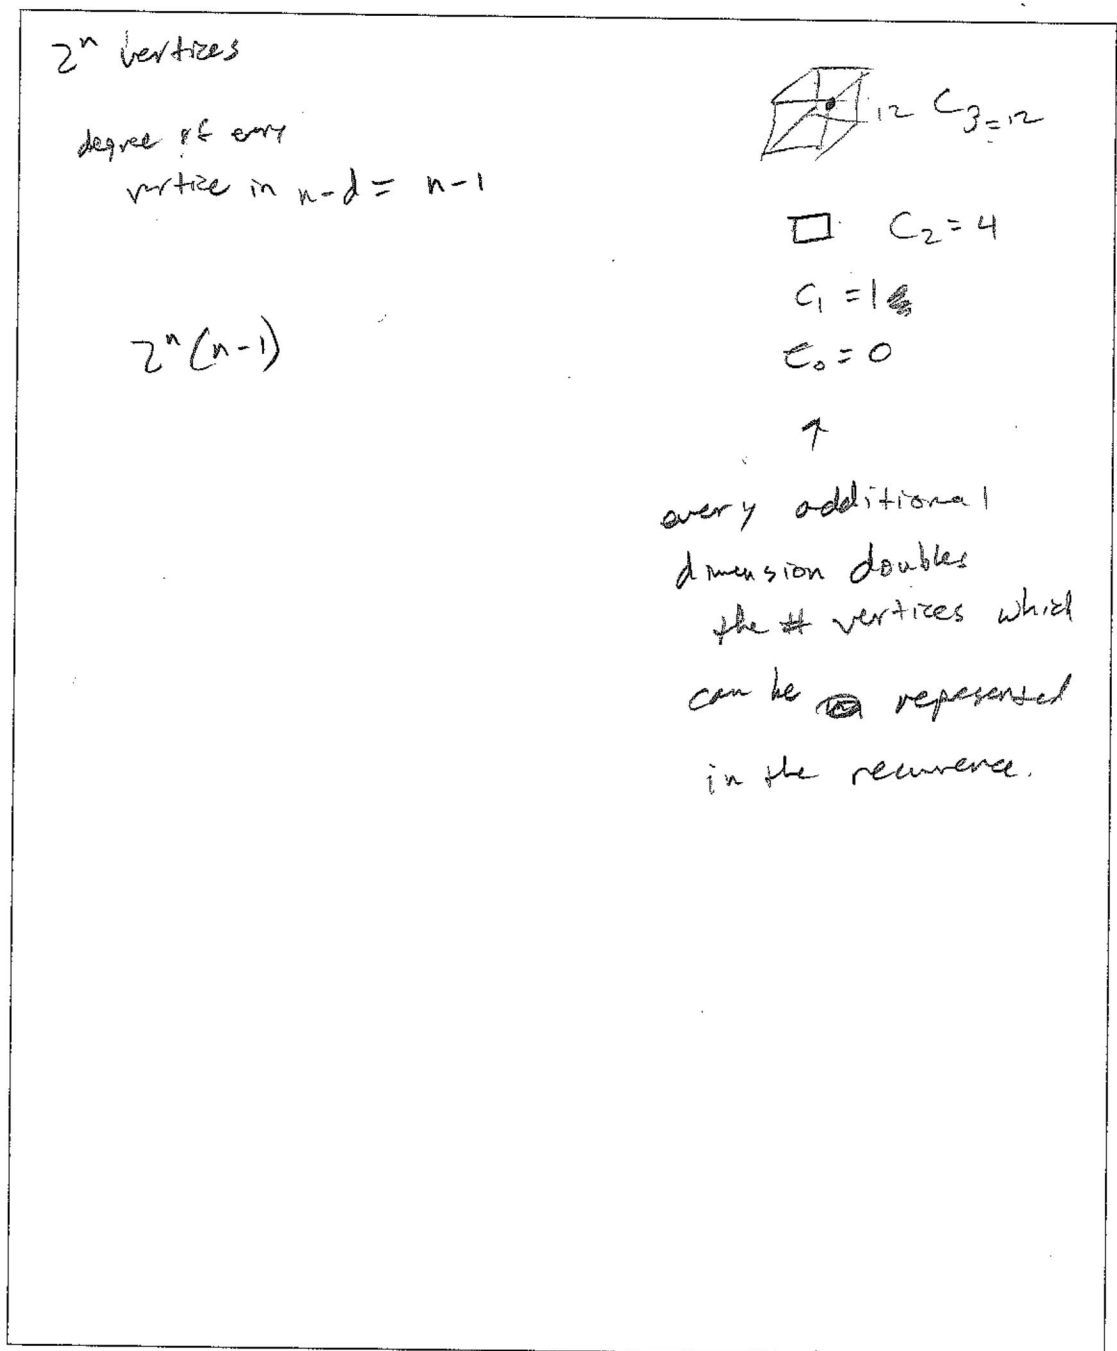 2ⁿ vertices
degree of every
vertice in n-d = n-1
2ⁿ(n-1)
12 C₃ = 12
C₂ = 4
C₁ = 1
C₀ = 0
↑
every additional
dimension doubles
the # vertices which
can be repesented
in the recurrence.